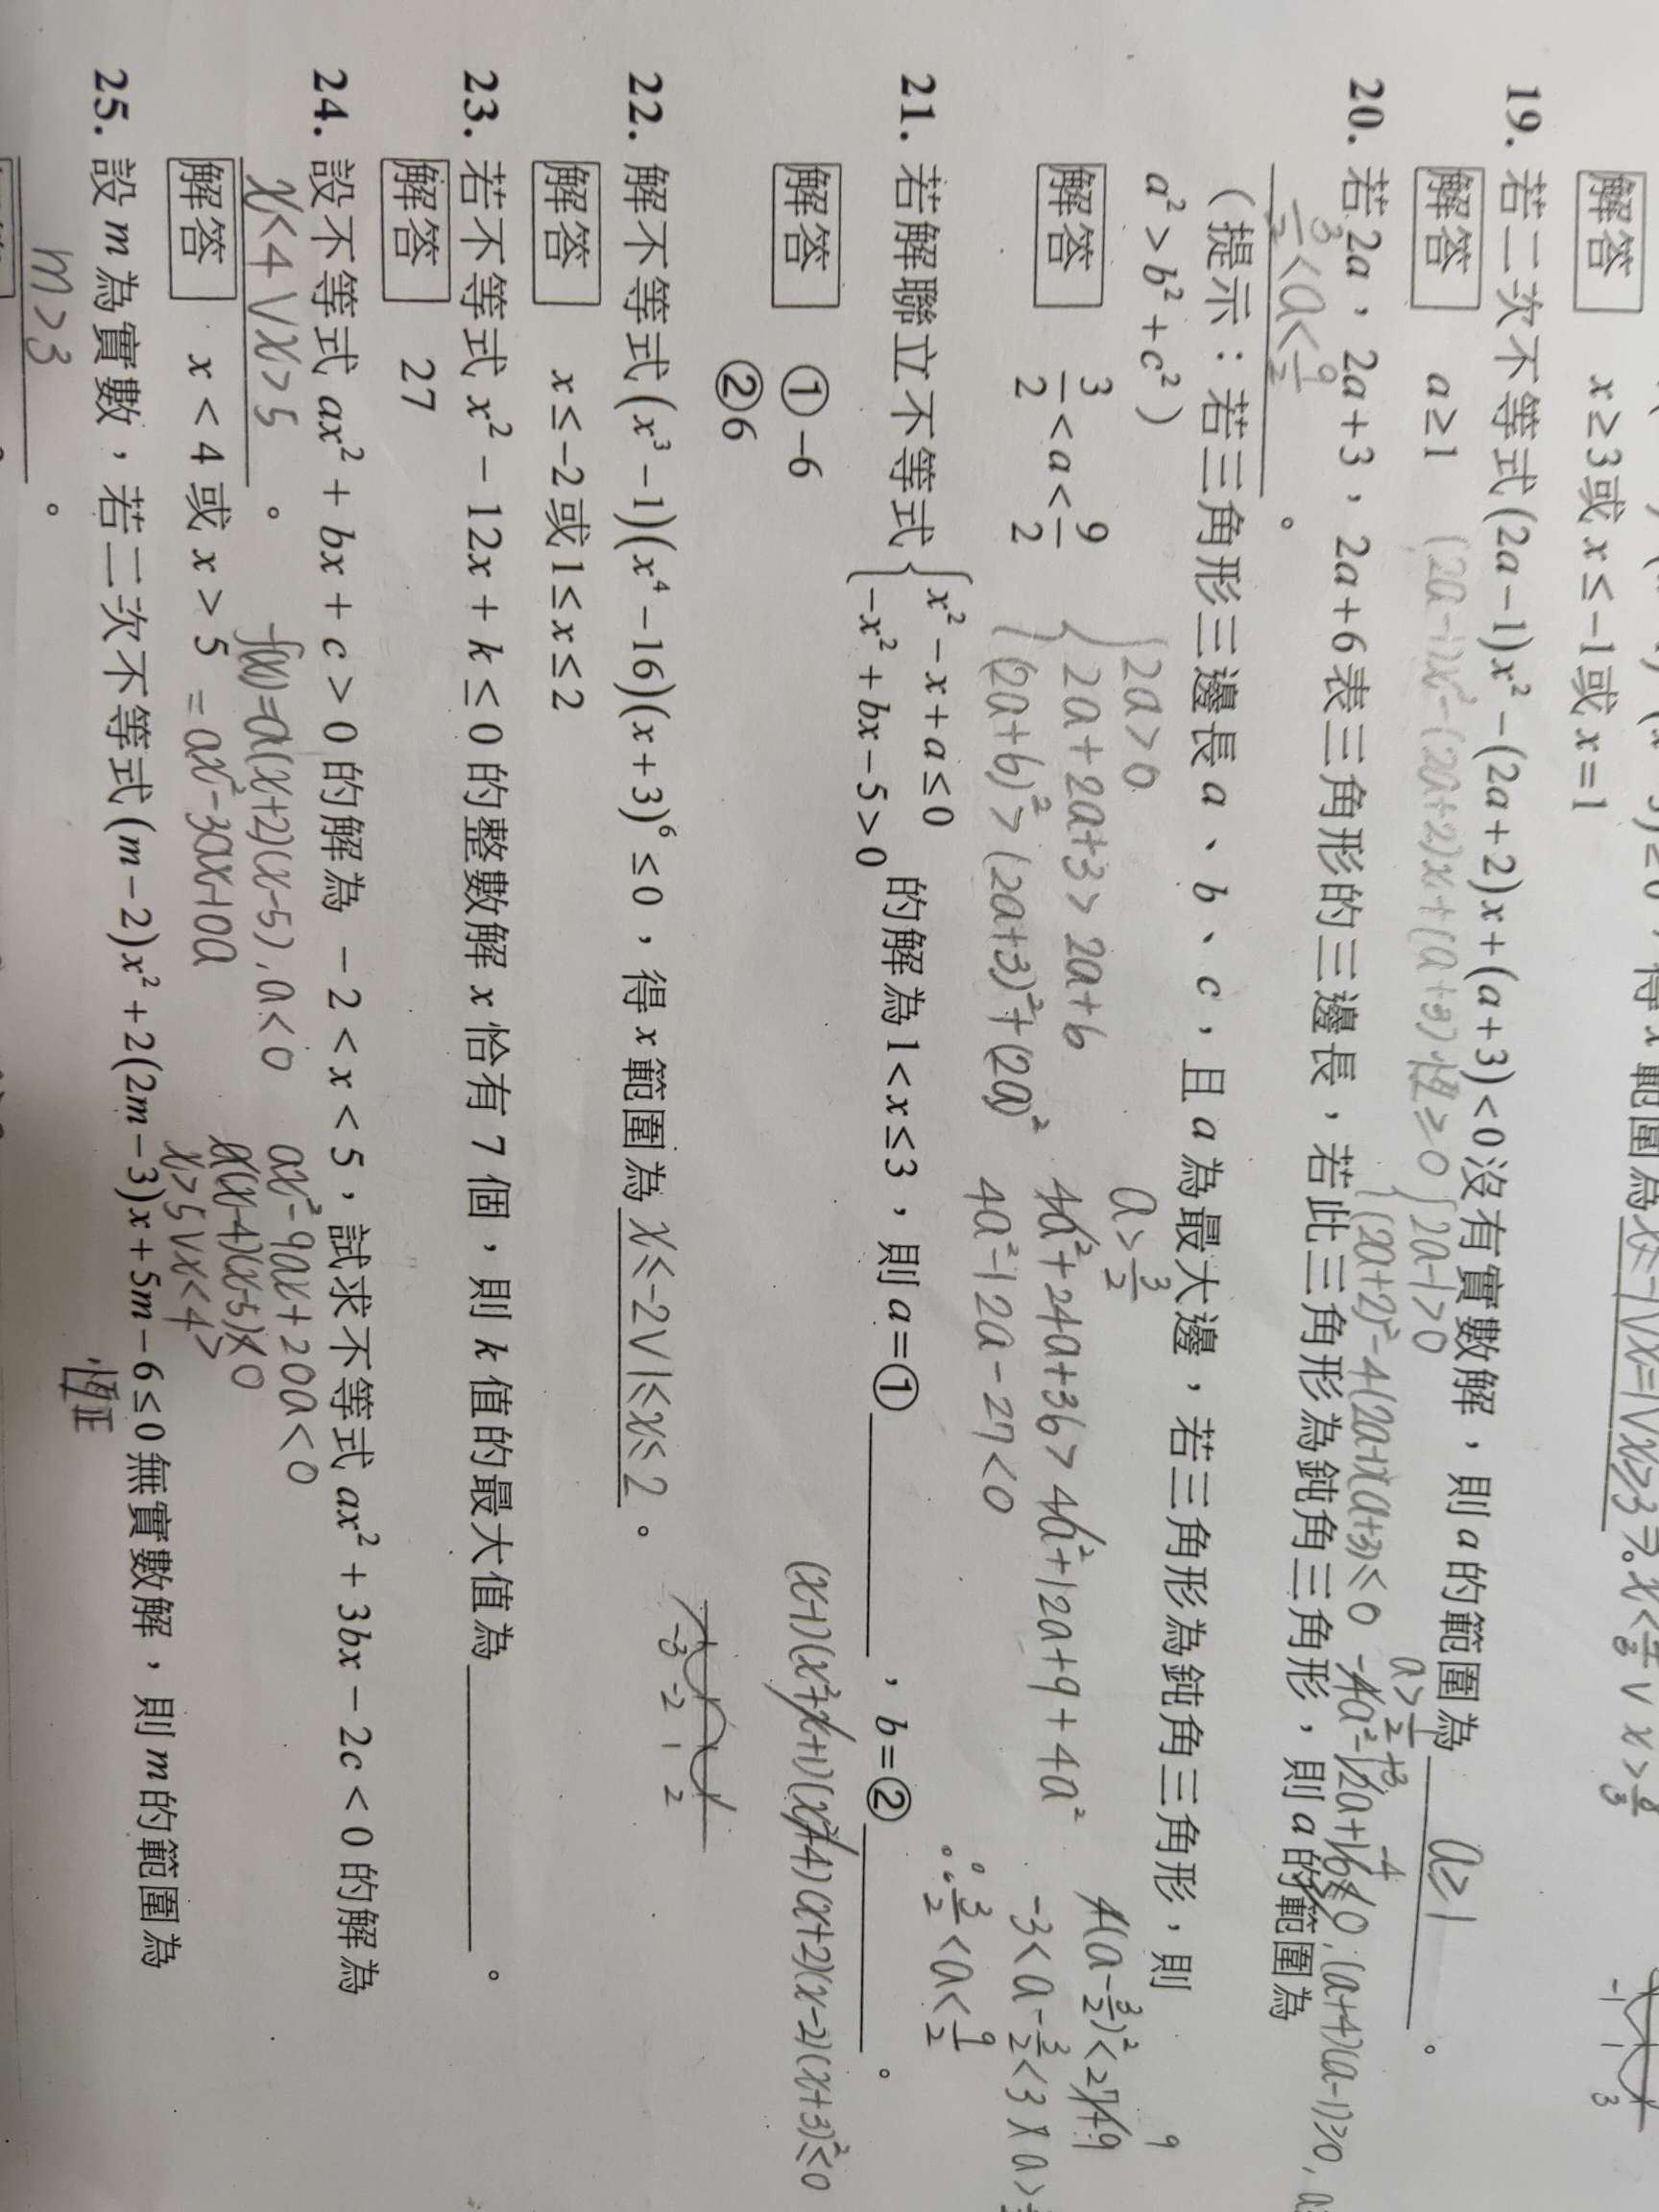 解答 x ≥ 3或 x ≤ −1或 x = 1
19. 若二次不等式 (2a−1)x² − (2a+2)x + (a+3) < 0 沒有實數解，則 a 的範圍為 a≥1 。
解答 a ≥ 1 (2a−1)x²−(2a+2)x+(a+3)恆≥0
20. 若 2a，2a+3，2a+6 表三角形的三邊長，若此三角形為鈍角三角形，則 a 的範圍為
3/2<a<9/2 。
（提示：若三角形三邊長 a、b、c，且 a 為最大邊，若三角形為鈍角三角形，則
a² > b² + c²）
解答 3/2 < a < 9/2
{ 2a>0
2a+2a+3>2a+6 a>3/2
(2a+6)²>(2a+3)²+(2a)² 4a²+24a+36>4a²+12a+9+4a²
4a²−12a−27<0
−3<a−3/2<3
∴ 3/2<a<9/2
21. 若解聯立不等式 { x² − x + a ≤ 0
−x² + bx − 5 > 0 的解為 1 < x ≤ 3，則 a = ① ，b = ② 。
解答 ① −6
②6
(x−1)(x²+x+1)(x²+4)(x+2)(x−2)(x+3)²≤0
22. 解不等式 (x³−1)(x⁴−16)(x+3)⁶ ≤ 0，得 x 範圍為 x≤−2∨1≤x≤2 。
−3 −2 1 2
解答 x ≤ −2或1 ≤ x ≤ 2
23. 若不等式 x² − 12x + k ≤ 0 的整數解 x 恰有 7 個，則 k 值的最大值為 。
解答 27
24. 設不等式 ax² + bx + c > 0 的解為 −2 < x < 5，試求不等式 ax² + 3bx − 2c < 0 的解為
x<4∨x>5 。
f(x)=a(x+2)(x−5), a<0 ax²−9ax+20a<0
解答 x < 4 或 x > 5 =ax²−3ax−10a
x>5∨x<4
25. 設 m 為實數，若二次不等式 (m−2)x² + 2(2m−3)x + 5m − 6 ≤ 0 無實數解，則 m 的範圍為
恆正
m>3 。